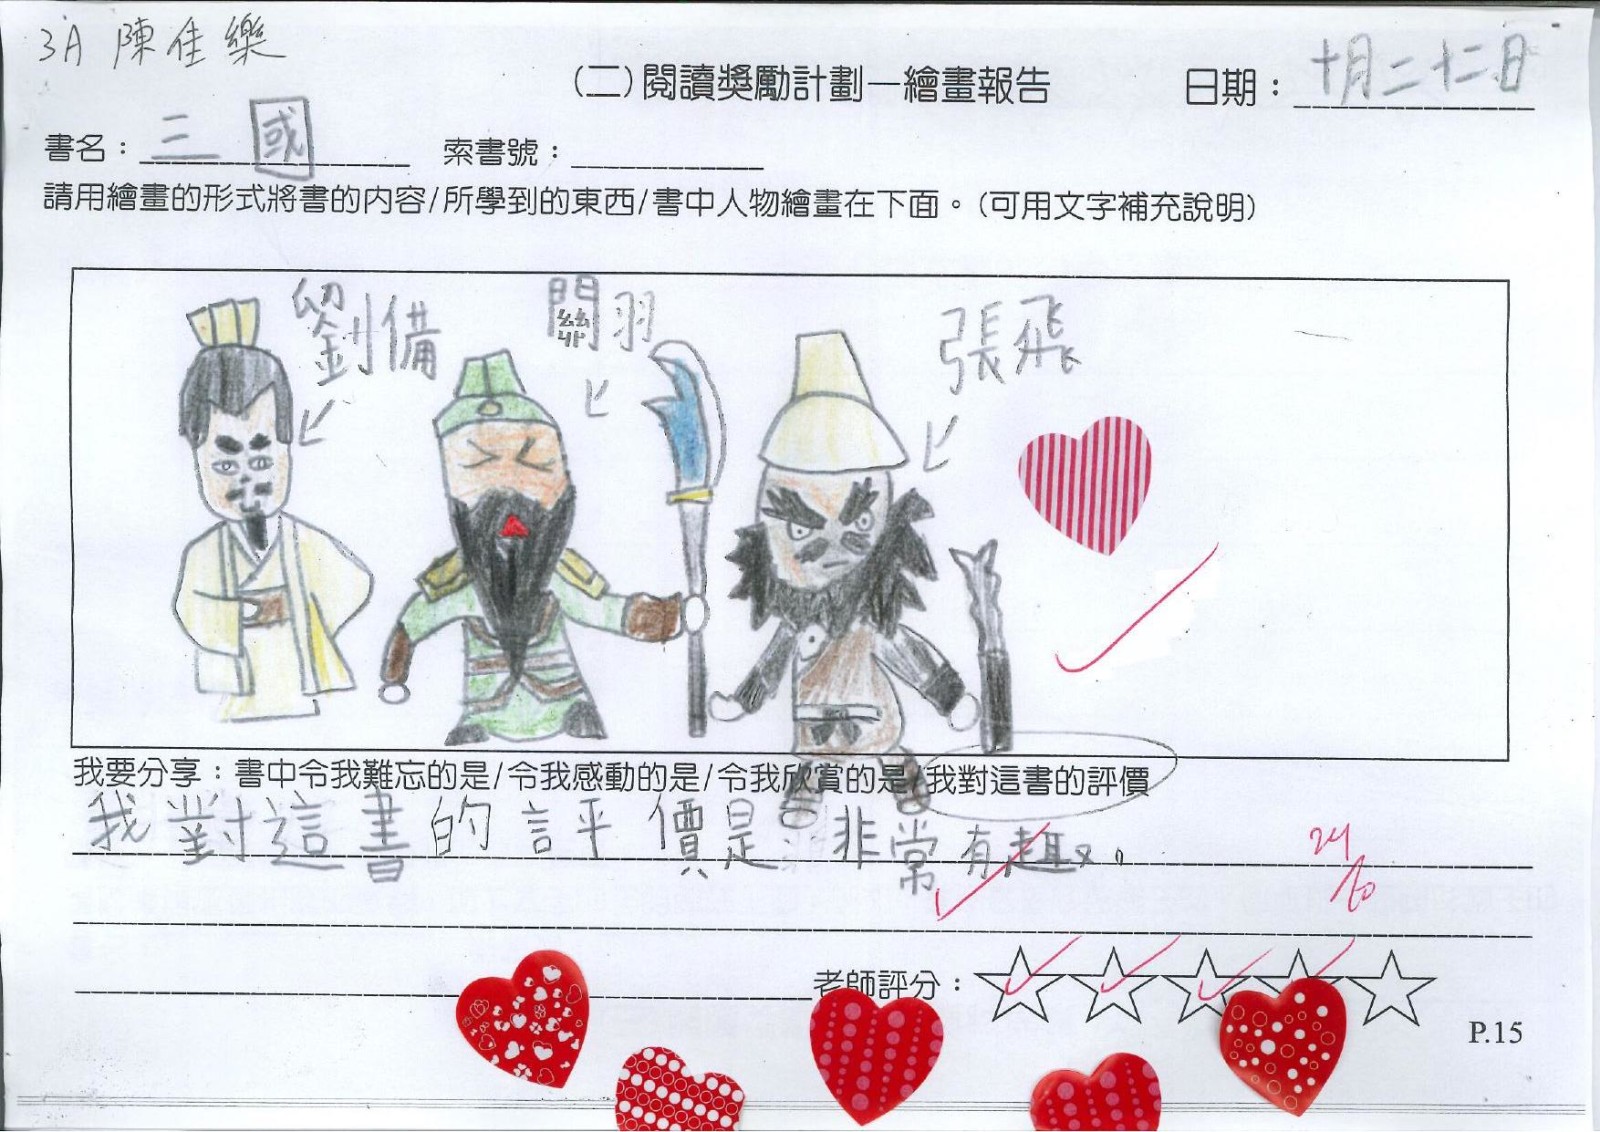 3A 陳佳樂
(二)閱讀獎勵計劃—繪畫報告 日期：十月二十二日
書名：三國 索書號：
請用繪畫的形式將書的內容/所學到的東西/書中人物繪畫在下面。(可用文字補充說明)
劉備 關羽 張飛
我要分享：書中令我難忘的是/令我感動的是/令我欣賞的是/我對這書的評價
我對這書的評價是非常有趣。
24/10
老師評分：
P.15